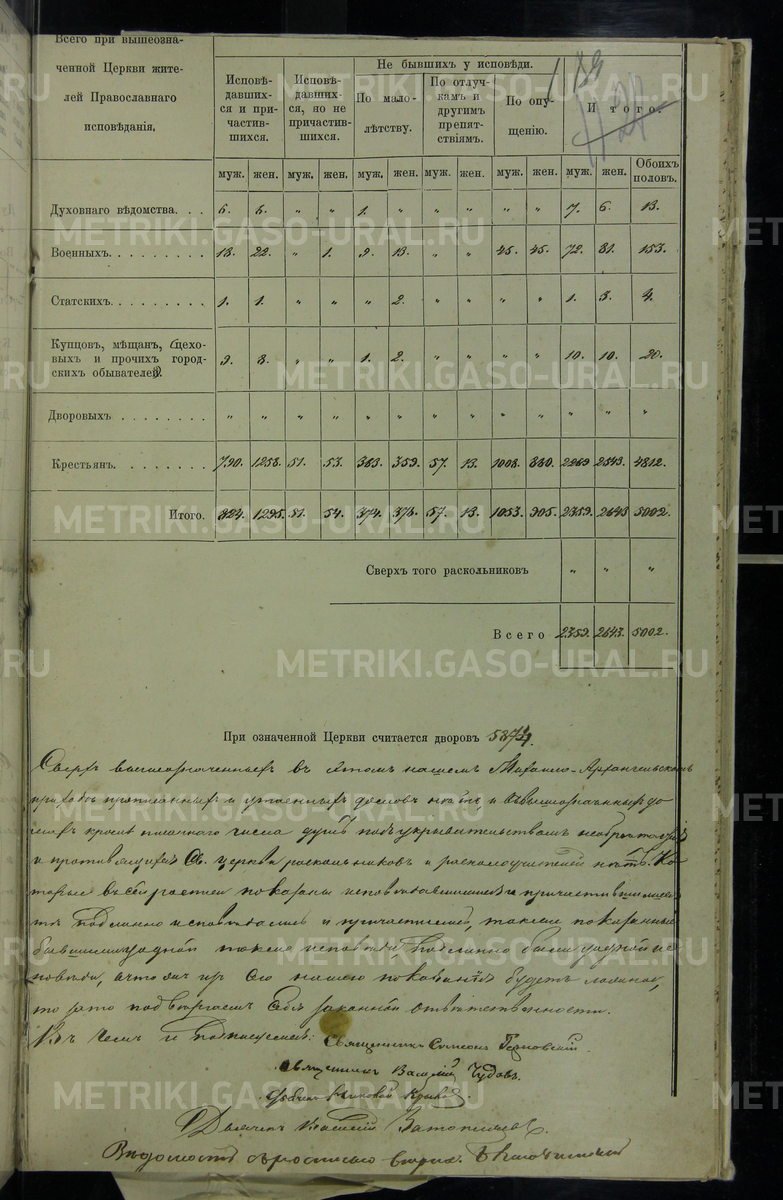 Всего при вышеозна-
ченной Церкви жите-
лей Православнаго
исповѣданія.
Исповѣ-
давших-
ся и при-
частив-
шихся.
Исповѣ-
давших-
ся, но не
причастив-
шихся.
Не бывшихъ у исповѣди.
По мало-
лѣтству.
По отлуч-
камъ и
другимъ
препят-
ствіямъ.
По опу-
щенію.
Итого.
муж. жен. муж. жен. муж. жен. муж. жен. муж. жен. муж. жен. Обоихъ половъ.
Духовнаго вѣдомства. . . 6. 6. " " 1. " " " " " 7. 6. 13.
Военныхъ. . . . . . . . . 18. 22. " 1. 9. 13. " " 45. 45. 72. 81. 153.
Статскихъ. . . . . . . . . 1. 1. " " " 2. " " " " 1. 3. 4.
Купцовъ, мѣщанъ, цехо-
выхъ и прочихъ город-
скихъ обывателей. 9. 8. " " 1. 2. " " " " 10. 10. 20.
Дворовыхъ . . . . . . . . " " " " " " " " " " " " "
Крестьянъ. . . . . . . . 790. 1258. 51. 53. 363. 359. 57. 13. 1008. 860. 2269 2543. 4812.
Итого. 824. 1295. 51. 54. 374. 376. 57. 13. 1053. 905. 2359. 2643 5002.
Сверхъ того раскольниковъ " " "
Всего 2359. 2643. 5002.
При означенной Церкви считается дворовъ
Сверхъ вышеозначенныхъ въ нашемъ Михаило-Архангельскомъ
приходѣ прописанныхъ и домовъ нѣтъ и въ вышеозначенныхъ до
мѣхъ кромѣ числа душъ подъ укрывательствомъ
и церкви раскольниковъ и нѣтъ. Ко
торые въ сей росписи показаны исповѣдавшимися и причастившимися
тѣ подлинно исповѣдались и причастились, также показанные
бывшими у одной токмо исповѣди, подлинно были у одной ис
повѣди, а изъ сего нашего показанія будетъ ложное,
то за то подвергаемъ себя законной отвѣтственности.
Въ чемъ и подписуемся: Священникъ Симеонъ
Священникъ Василій Чудовъ.
Дьячекъ Василій
METRIKI.GASO-URAL.RU